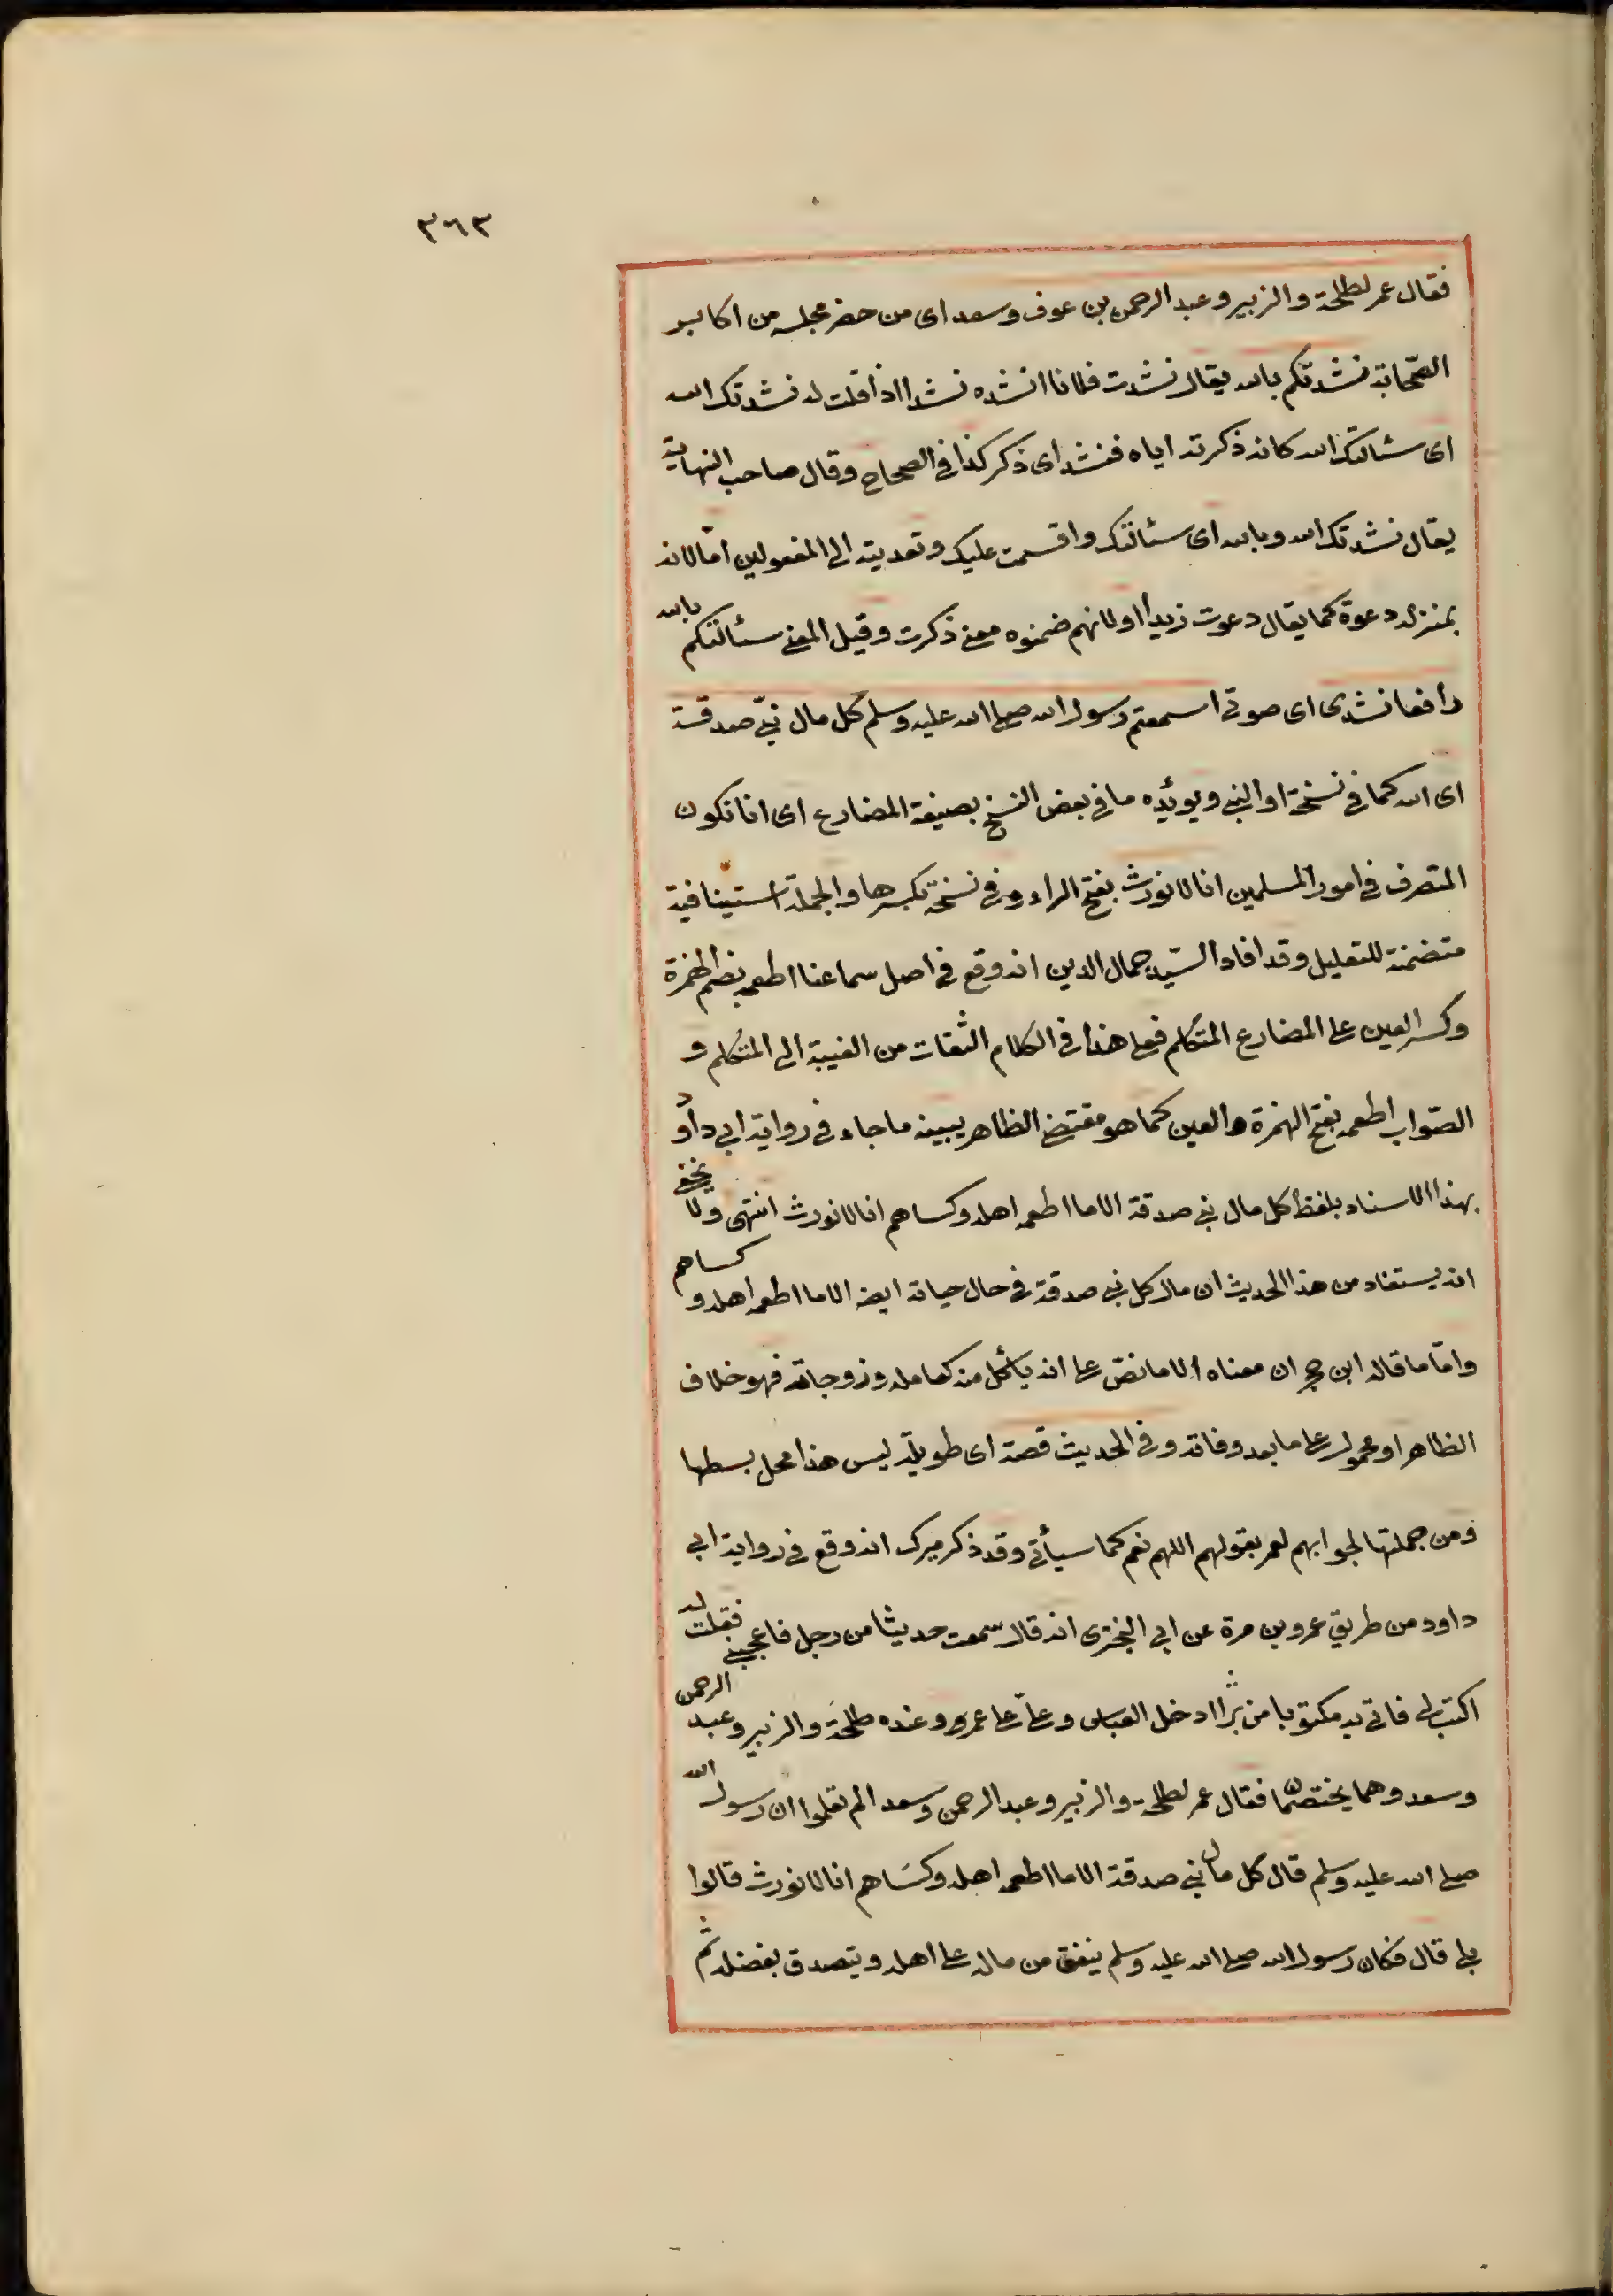 ٣٦٣
فقال عمر لطلحة والزبير وعبد الرحمن بن عوف وسعد اى من حضر مجلسه من اكابر
الصّحابة نشدتكم بالله يقال نشدت فلانا انشده نشدا اذا قلت له نشدتك الله
اى سئالتك الله كانه ذكرته اياه فنشد اى ذكر كذا في الصحاح وقال صاحب النهاية
يقال نشدتك الله وبالله اى سئالتك واقسمت عليك وتعديته الى المفعولين امّا لانه
بمنزله دعوة كما يقال دعوت زيدا او لانهم ضمنوه معنى ذكرت وقيل المعنى سئالتكم بالله
رافعا نشدى اى صوتى اسمعتم رسول الله صلى الله عليه وسلم كل مال نبىّ صدقة
اى الله كما في نسخة او النبي ويوئده ما في بعض النسخ بصيغة المضارع اى انا نكون
المتصرف في امور المسلمين انا لا نورث بفتح الراء وفي نسخة بكسرها والجملة استينافية
متضمنة للتعليل وقد افاد السّيد جمال الدين انه وقع في اصل سماعنا اطعمه بضم الهمزة
وكسر العين على المضارع المتكلم فعلى هذا في الكلام التفات من الغيبة الى المتكلم و
الصّواب اطعمه بفتح الهمزة والعين كما هو مقتضى الظاهر يبينه ما جاء في رواية ابي داود
بهذا الاسناد بلفظ كل مال نبي صدقة الا ما اطعمه اهله وكساهم انا لا نورث انتهى ولا يخفى
انه يستفاد من هذا الحديث ان مال كل نبي صدقة في حال حياته ايضه الا ما اطعمه اهله وكساهم
وامّا ما قاله ابن حجر ان معناه الا ما نصّ على انه يأكل منه كعامله وزوجاته فهو خلاف
الظاهر او محمول على ما بعد وفاته وفي الحديث قصة اى طويلة ليس هذا محل بسطها
ومن جملتها لجوابهم لعمر بقولهم اللهم نعم كما سيأتى وقد ذكر ميرك انه وقع في رواية ابي
داود من طريق عمرو بن مرة عن ابي البخترى انه قال سمعت حديثا من رجل فاعجبنى فقلت له
اكتب لى فاتى به مكتوبا دخل العباس وعلىّ على عمر وعنده طلحة والزبير وعبد الرحمن
وسعد وهما يختصمان فقال عمر لطلحة والزبير وعبد الرحمن وسعد الم تعلموا ان رسول الله
صلى الله عليه وسلم قال كل مال نبي صدقة الا ما اطعمه اهله وكسَاهم انا لا نورث قالوا
بلى قال فكان رسول الله صلى الله عليه وسلم ينفق من ماله على اهله ويتصدق بفضله ثم